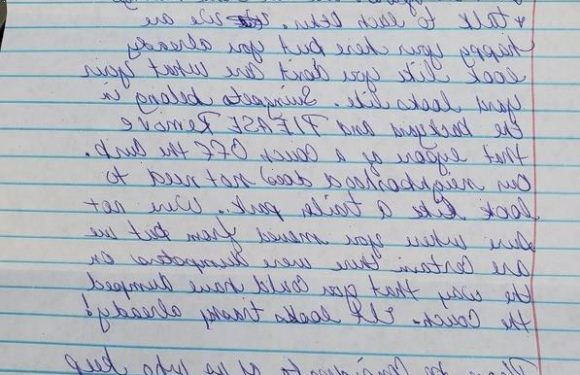 & talk to each other. We are
happy your here but you already
look like you don't care what your
yard looks like. Swingsets belong in
the backyard and PLEASE Remove
that eyesore of a couch OFF the curb.
Our neighborhood does not need to
look like a trailer park. We're not
sure where you moved from but we
are Certain there were dumpsters on
the way that you could have dumped
the couch. looks trashy already!
Please be Considerate of us who keep